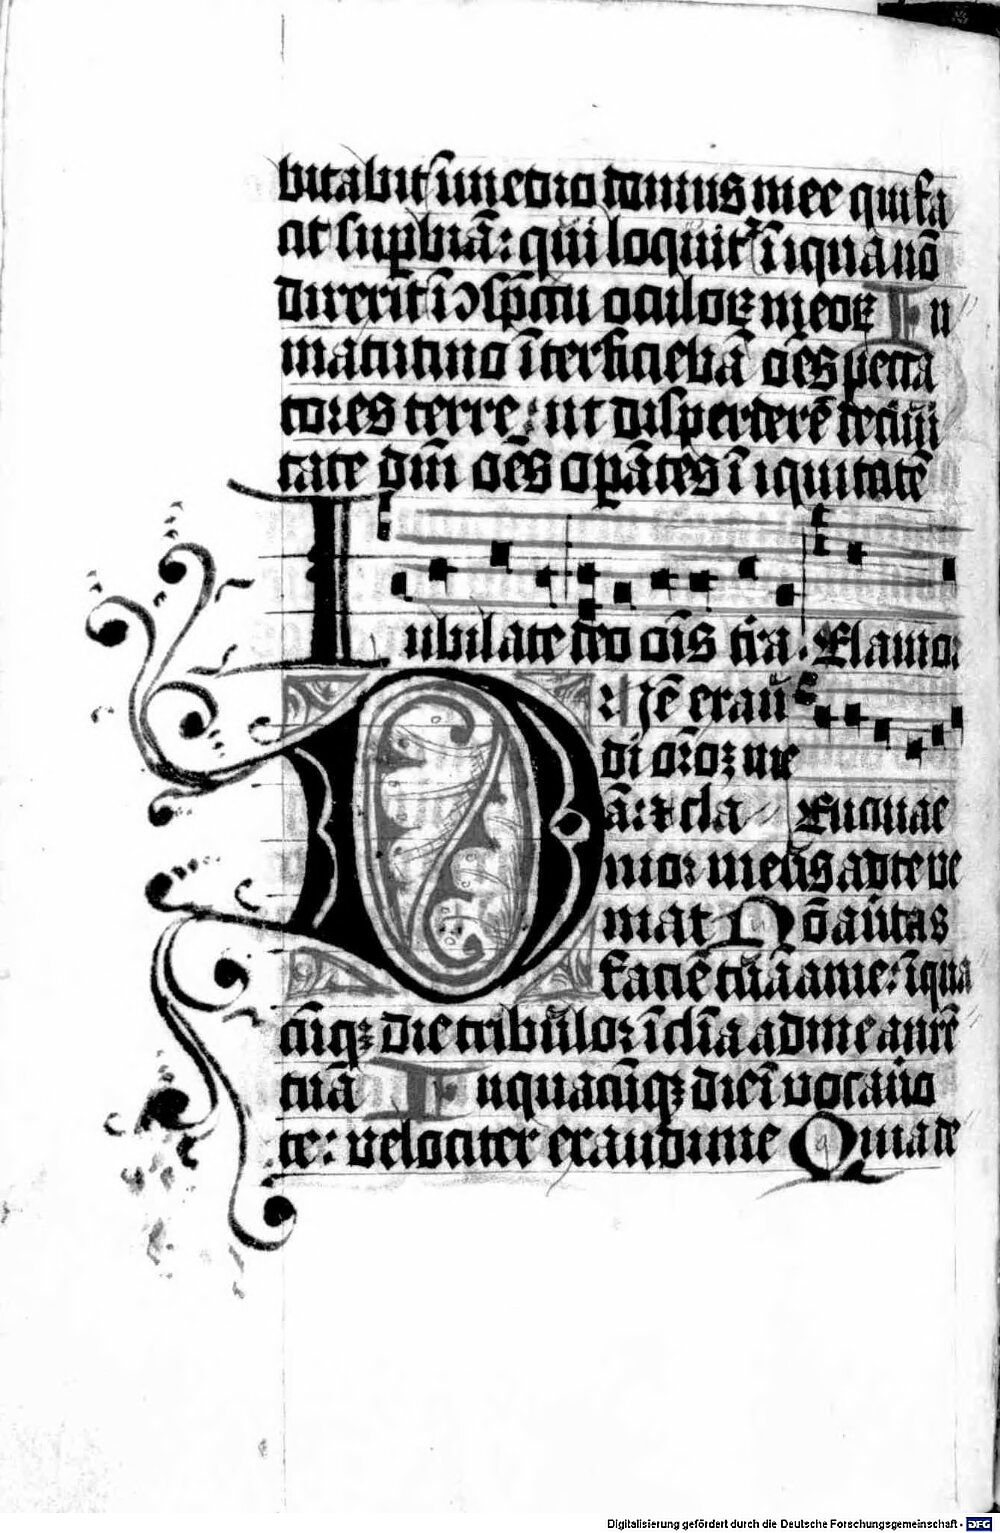 bitabit ī medio domus mee qui fa
cit sup̄biā: qui loquit̉ īiqua nō
direxit ī ɔsp̄ctu oculoꝝ meoꝝ In
matutino īterficiebā oēs pecca
tores terre: ut disperderē de ciui
tate dn̄i oēs op̄ātes īiquitatē
Iubilate deo oīs tr̄a. Clamor
Dn̄e exau
di or̄oꝫ me
ā: ⁊ cla Euouae
mor meus ad te ve
niat Nō au̾tas
faciē tuā a me: ī qua
cūqꝫ die tribuloꝛ īclīa ad me aurē
tuā In quacūqꝫ die īuocauo
te: velociter exaudi me Quia de
Digitalisierung gefördert durch die Deutsche Forschungsgemeinschaft - DFG